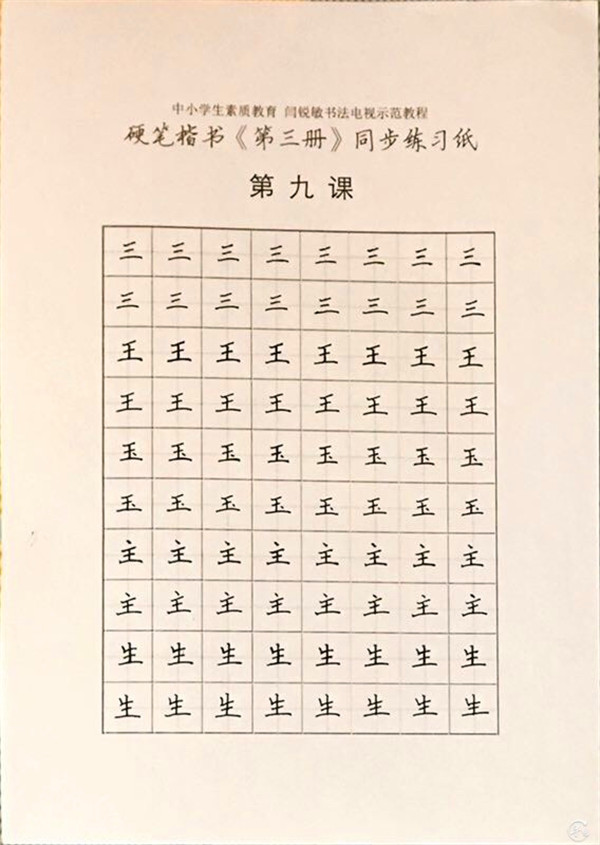 中小学生素质教育 闫锐敏书法电视示范教程
硬笔楷书《第三册》同步练习纸
第九课
三三三三三三三三
三三三三三三三三
王王王王王王王王
王王王王王王王王
玉玉玉玉玉玉玉玉
玉玉玉玉玉玉玉玉
主主主主主主主主
主主主主主主主主
生生生生生生生生
生生生生生生生生